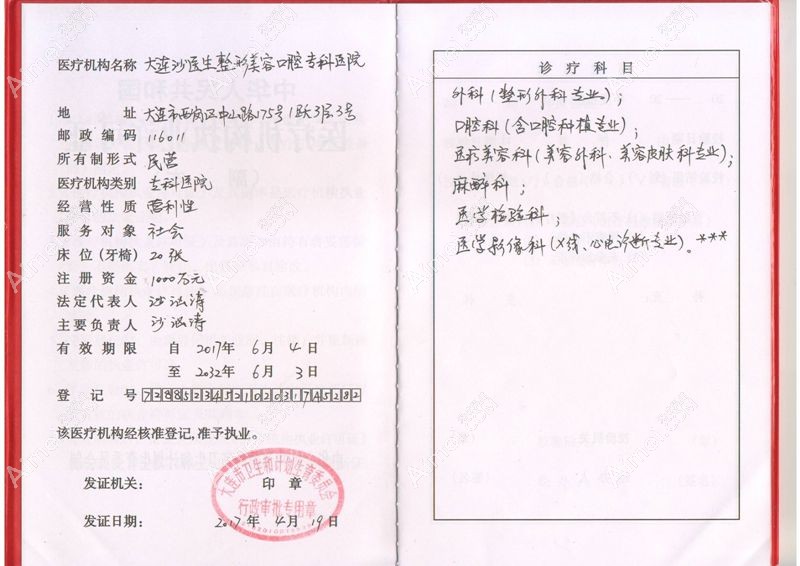 医疗机构名称 大连沙医生整形美容口腔专科医院
地 址 大连市西岗区中山路175号1跃3层3号
邮政编码 116011
所有制形式 民营
医疗机构类别 专科医院
经营性质 营利性
服务对象 社会
床位(牙椅) 20张
注册资金 1000万元
法定代表人 沙泓涛
主要负责人 沙泓涛
有效期限 自 2017年 6月 4日
至 2032年 6月 3日
登记号
该医疗机构经核准登记,准予执业。
发证机关: 印章
大连市卫生和计划生育委员会
行政审批专用章
发证日期: 2017年 4月 19日
诊疗科目
外科(整形外科专业);
口腔科(含口腔科植专业);
医疗美容科(美容外科、美容皮肤科专业);
麻醉科;
医学检验科;
医学影像科(X线、心电诊断专业)。***